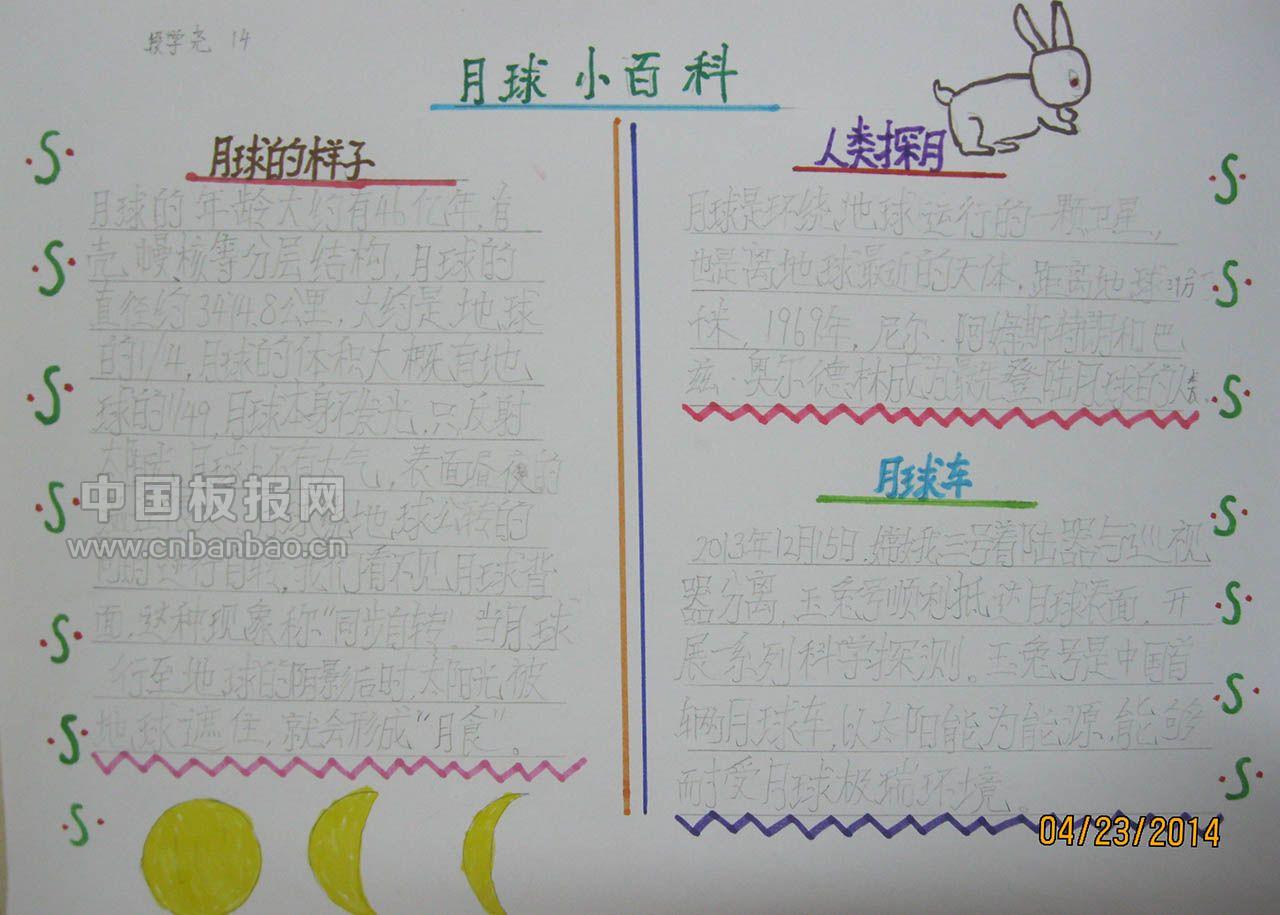 学尧 14
月球小百科
月球的样子
月球的年龄大约有46亿年,有
壳、幔、核等分层结构,月球的
直径约3474.8公里,大约是地球
的1/4,月球的体积大概有地
球的1/49,月球本身不发光,只反射
太阳光,月球上不有大气,表面昼夜的
中国板报网
www.cnbanbao.cn
地球公转的
同时进行自转,我们看不见月球背
面,这种现象称“同步自转”.当月球
行至地球的阴影后时,太阳光被
地球遮住,就会形成“月食”。
人类探月
月球是环绕地球运行的一颗卫星,
也是离地球最近的天体,距离地球
千米,1969年,尼尔·阿姆斯特朗和巴
兹·奥尔德林成为最先登陆月球的人类.
月球车
2013年12月15日,嫦娥三号着陆器与巡视
器分离,玉兔号顺利抵达月球表面,开
展一系列科学探测。玉兔号是中国首
辆月球车,以太阳能为能源,能够
耐受月球极端环境。
04/23/2014